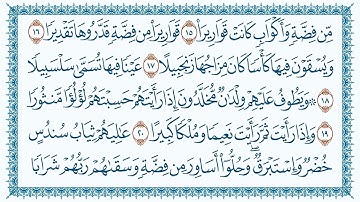 مِّن فِضَّةٍ وَأَكْوَابٍ كَانَتْ قَوَارِيرَا۠ ١٥ قَوَارِيرَا۟ مِن فِضَّةٍ قَدَّرُوهَا تَقْدِيرًا ١٦
وَيُسْقَوْنَ فِيهَا كَأْسًا كَانَ مِزَاجُهَا زَنجَبِيلًا ١٧ عَيْنًا فِيهَا تُسَمَّىٰ سَلْسَبِيلًا
١٨ ۞ وَيَطُوفُ عَلَيْهِمْ وِلْدَٰنٌ مُّخَلَّدُونَ إِذَا رَأَيْتَهُمْ حَسِبْتَهُمْ لُؤْلُؤًا مَّنثُورًا
١٩ وَإِذَا رَأَيْتَ ثَمَّ رَأَيْتَ نَعِيمًا وَمُلْكًا كَبِيرًا ٢٠ عَٰلِيَهُمْ ثِيَابُ سُندُسٍ
خُضْرٌ وَإِسْتَبْرَقٌ ۖ وَحُلُّوٓا۟ أَسَاوِرَ مِن فِضَّةٍ وَسَقَىٰهُمْ رَبُّهُمْ شَرَابًا